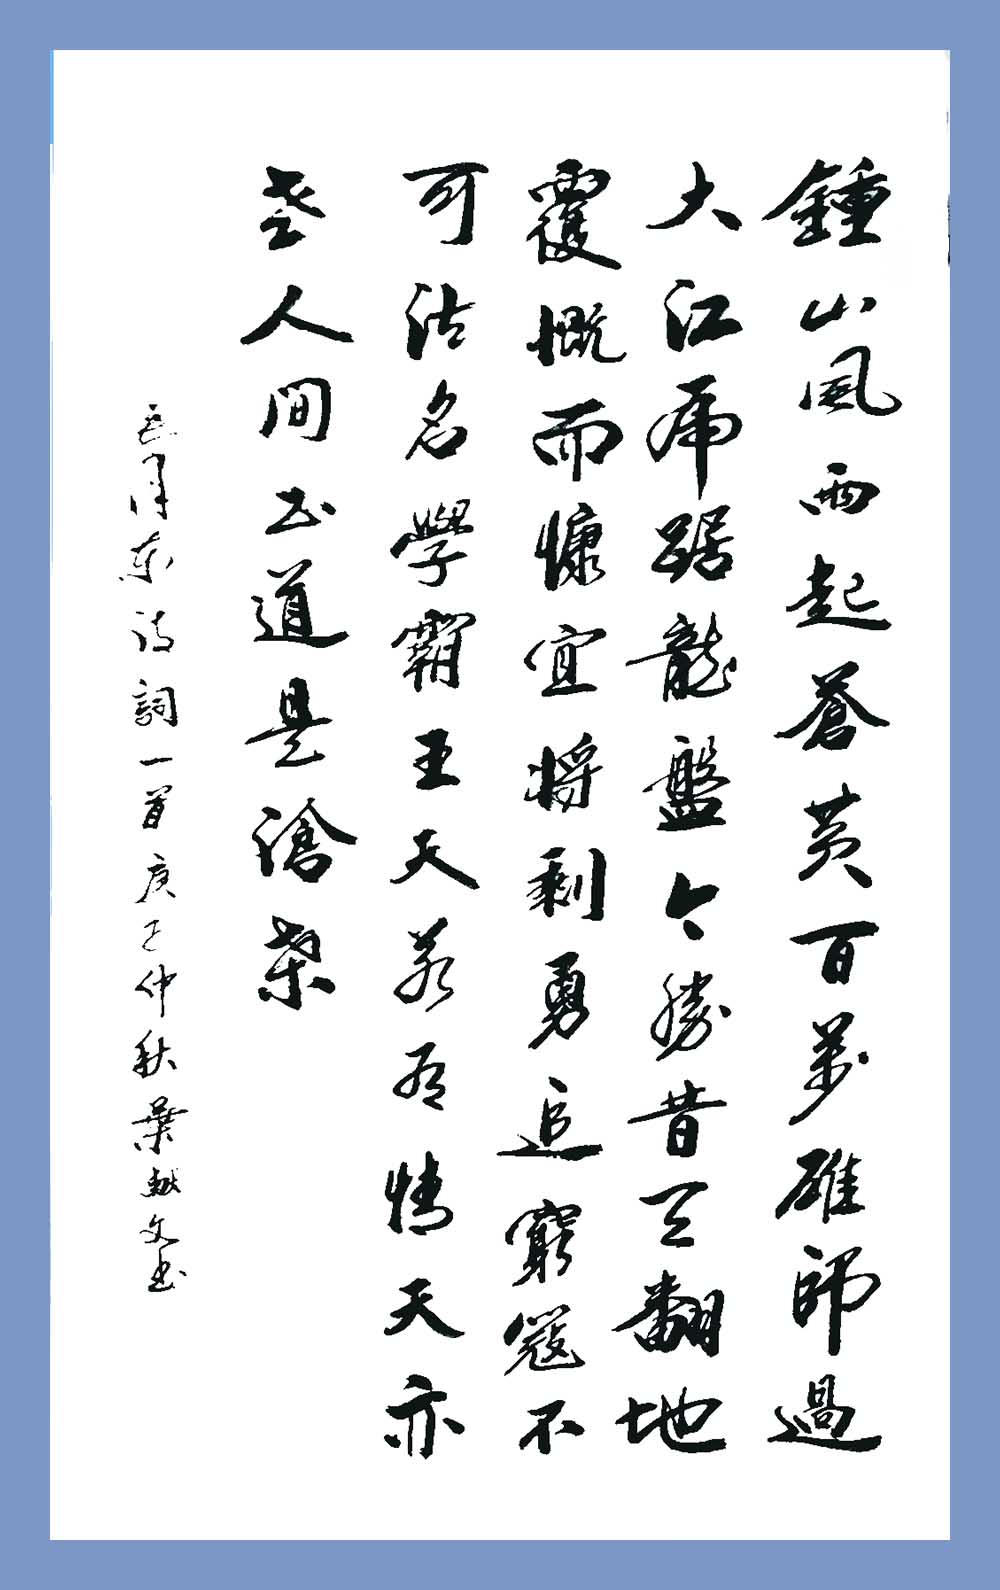 鍾山風雨起蒼黄百萬雄師過
大江虎踞龍盤今勝昔天翻地
覆慨而慷宜將剩勇追窮寇不
可沽名學霸王天若有情天亦
老人間正道是滄桑
毛澤東詩詞一首庚子仲秋葉文书